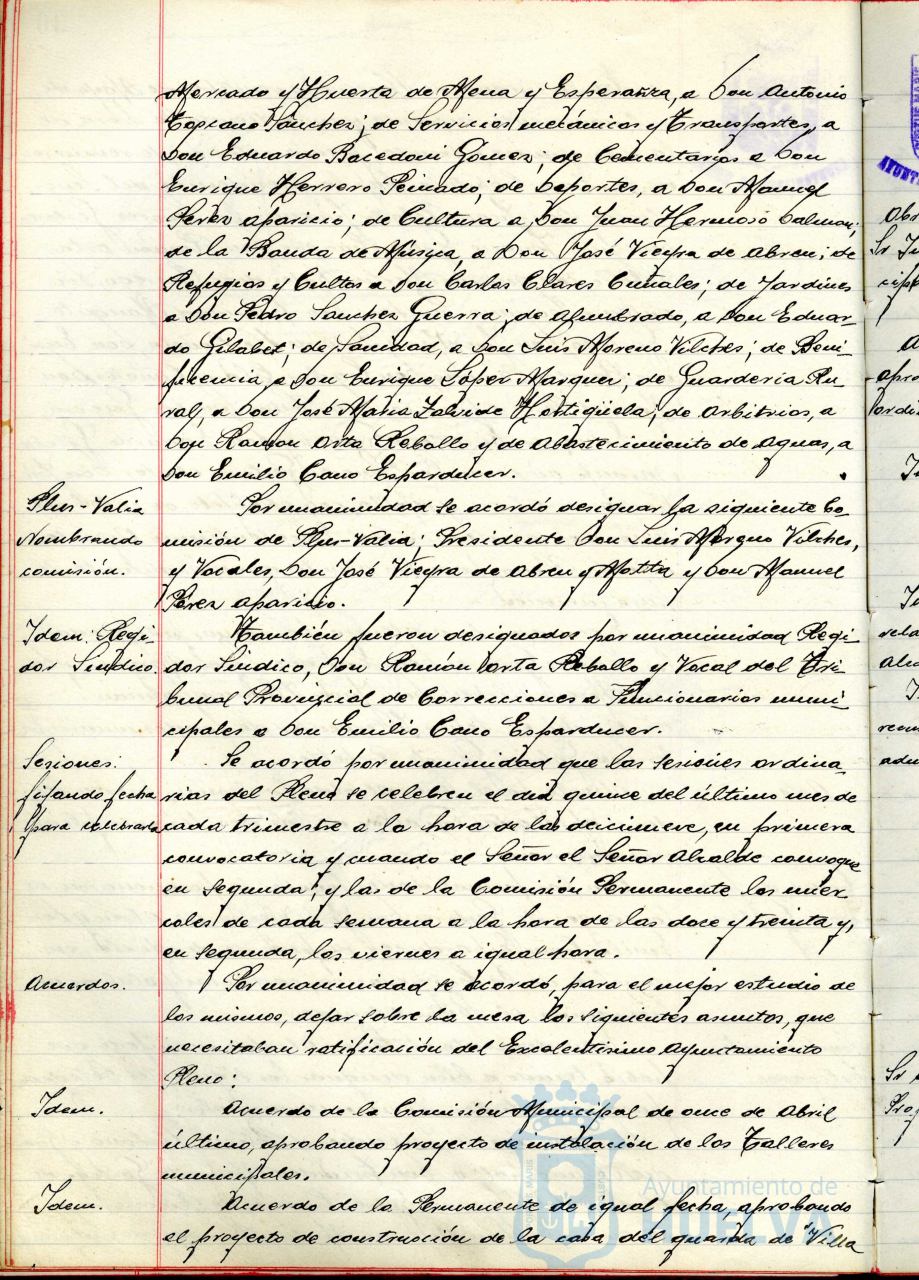 Mercado y Huerta de Mena y Esperanza, a Don Antonio
Toscano Sánchez; de Servicios mecánicos y Transportes, a
Don Eduardo Bacedoni Gómez; de Cementarios a Don
Enrique Herrero Peinado; de Deportes, a Don Manuel
Pérez aparicio; de Cultura a Don Juan Hermoso Dalmau;
de la Banda de Música, a Don José Vieyra de Abreu; de
Refugios y Cultos a Don Carlos Clares Cuñales; de Jardines
a Don Pedro Sanchez Guerra; de Alumbrado, a Don Eduar-
do Gilabet; de Sanidad, a Don Luis Moreno Vilches; de Beni-
ficencia, a Don Enrique López Marquez; de Guarderia Ru-
ral, a Don José Maria Zalvide Hortigüela; de Arbitrios, a
Don Ramon Orta Rebollo y de Abastecimiento de Aguas, a
Don Emilio Cano Esparducer.
Plus-Valia
Nombrando
comisión.
Por unanimidad se acordó designar la siguiente Co-
misión de Plus-Valia; Presidente Don Luis Moreno Vilches,
y Vocales, Don José Vieyra de Abreu y Motta y Don Manuel
Pérez aparicio.
Idem: Regi-
dor Sindico.
También fueron designados por unanimidad Regi-
dor Síndico, Don Ramón Orta Rebollo y Vocal del Tri-
bunal Provincial de Correcciones a Funcionarios muni-
cipales a Don Emilio Cano Esparducer.
Sesiones:
fijando fecha
para celebrarla
Se acordó por unanimidad que las sesiones ordina-
rias del Pleno se celebren el dia quince del último mes de
cada trimestre a la hora de las deicinueve, en primera
convocatoria y cuando el Señor el Señor Alcalde convoque
en segunda; y las de la Comisión Permanente los miér-
coles de cada semana a la hora de las doce y treinta y,
en segunda, los viernes a igual hora.
Acuerdos.
Por unanimidad se acordó, para el mejor estudio de
los mismos, dejar sobre la mesa los siguientes asuntos, que
necesitaban ratificación del Excelentísimo Ayuntamiento
Pleno:
Idem.
Acuerdo de la Comisión Municipal de once de Abril
último, aprobando proyecto de instalación de los Talleres
municipales.
Idem.
Acuerdo de la Permanente de igual fecha, aprobando
el proyecto de construcción de la casa del guarda de "Villa
Ayuntamiento de
HUELVA